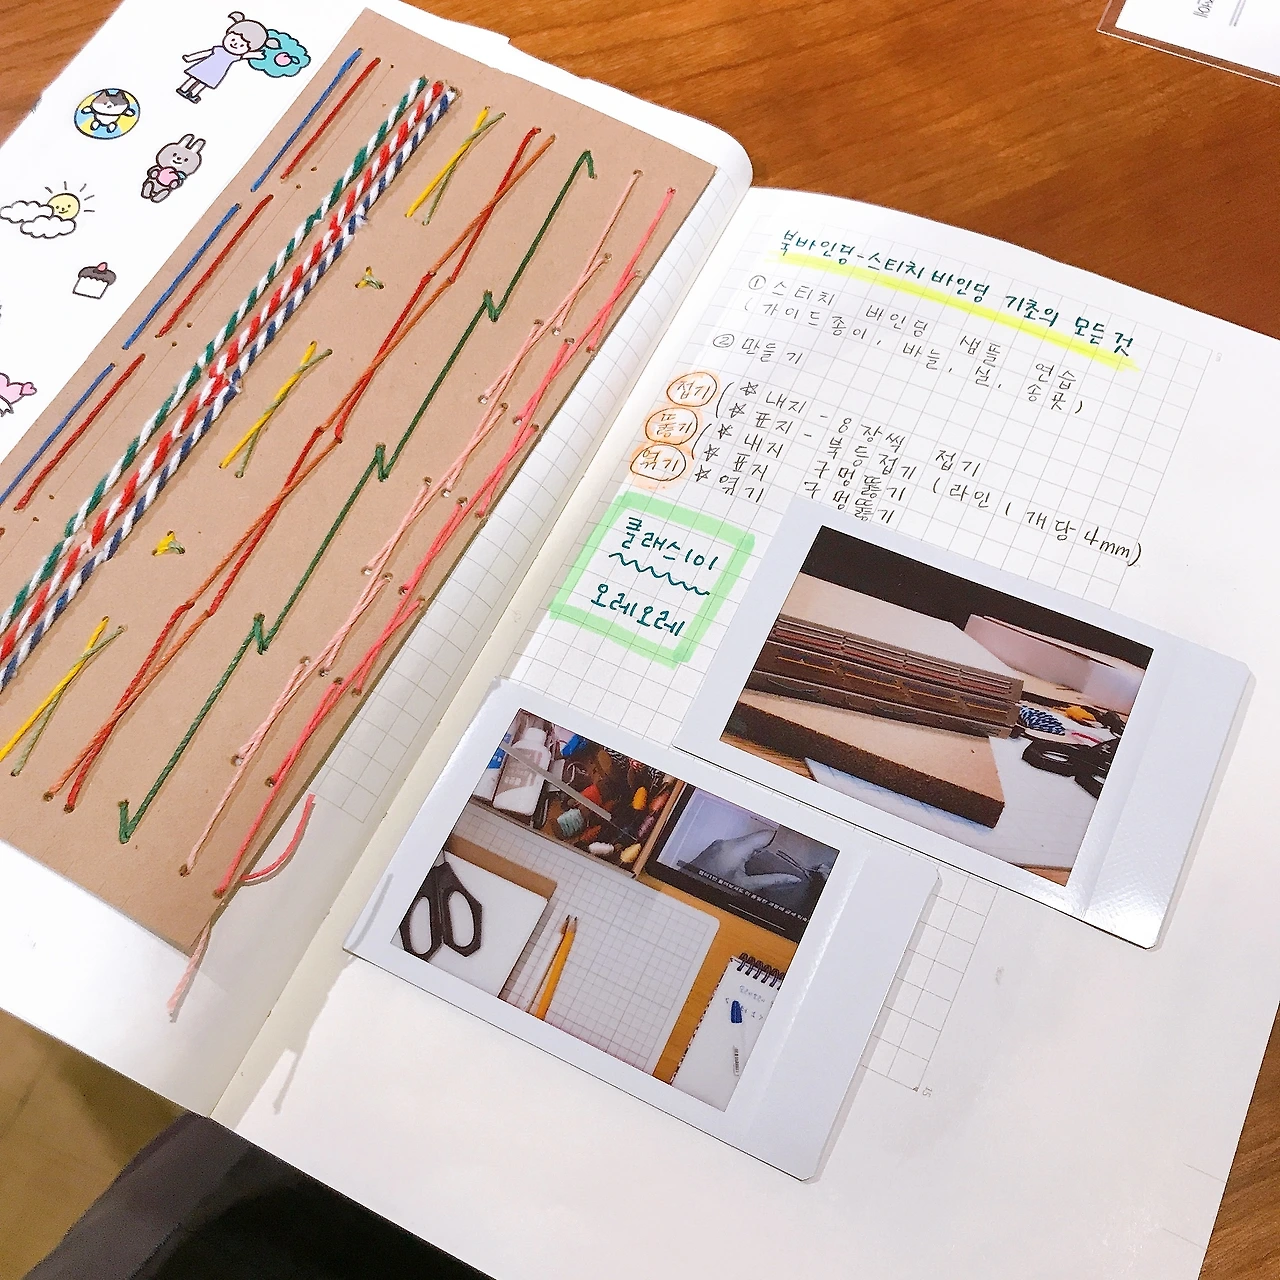 북바인딩-스티치 바인딩 기초의 모든것
① 스티치 바인딩 샘플 연습
(가이드종이, 바늘, 실, 송곳)
② 만들기
접기 (☆ 내지 - 8장씩 접기
(☆ 표지 - 북등접기 (라인 1개당 4mm)
뚫기 (☆ 내지 구멍뚫기
☆ 표지 구멍뚫기
엮기 ☆ 엮기
클래스101
오레오레